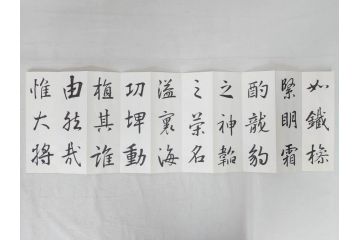 如鐵操
緊明霜
酌龍豹
之神韜
之榮名
溢寰海
功埤動
植其誰
由然哉
惟大将